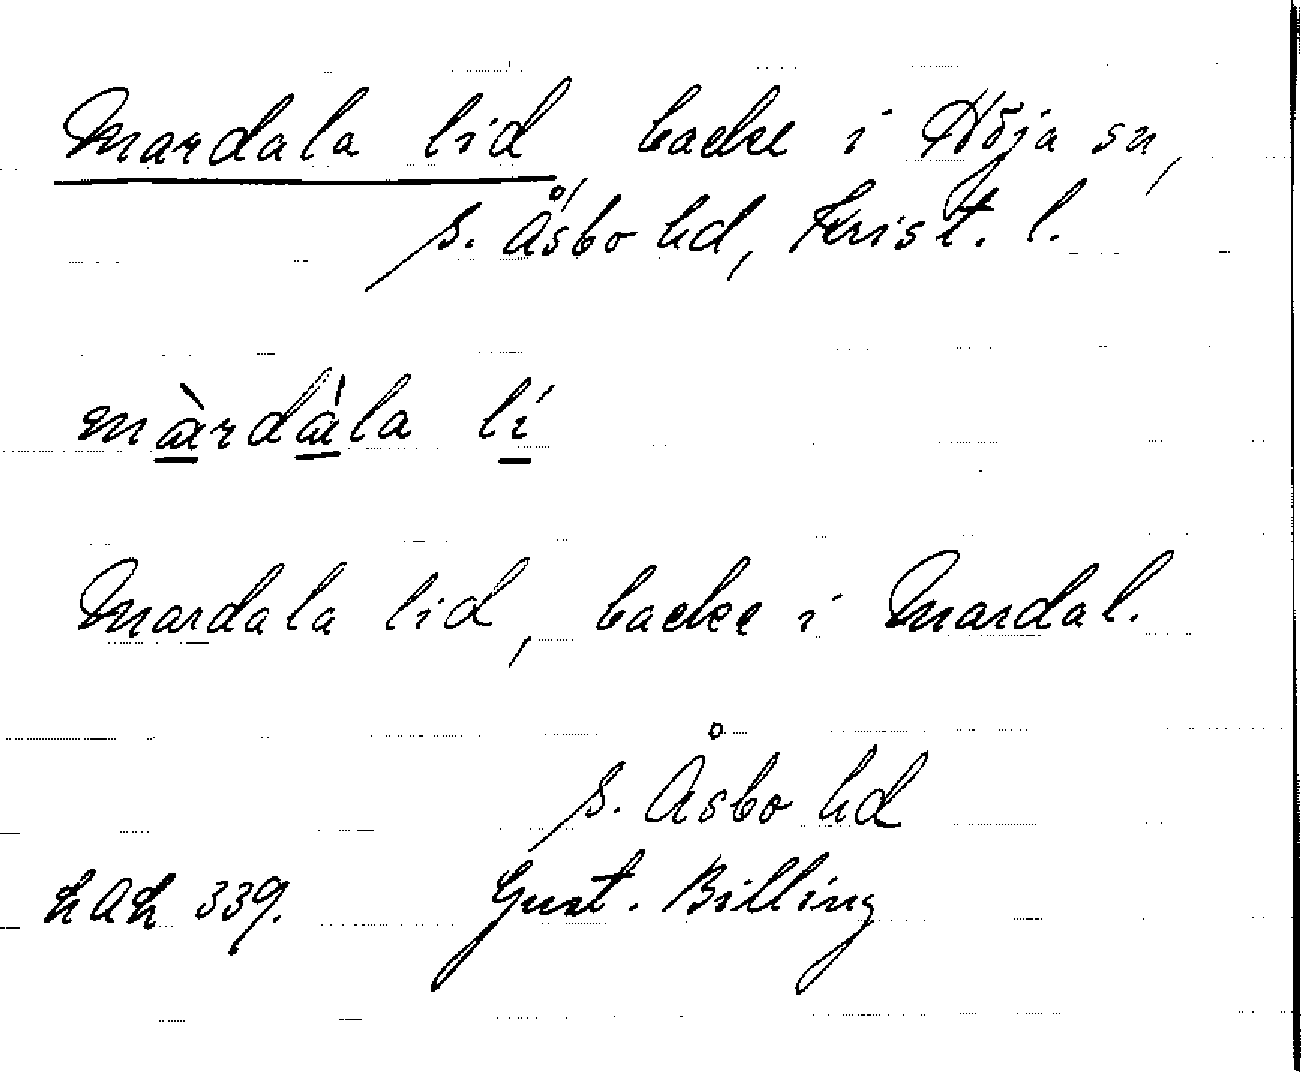 Mardala lid backe i Höja sn,
S. Åsbo hd, Krist. l.
màrdàla lí
Mardala lid, backe i Mardal.
S. Åsbo hd
LAL 339. Gust. Billing